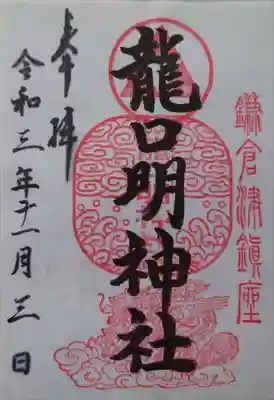 鎌倉津鎮座
龍口明神社
奉拝
令和三年十一月三日